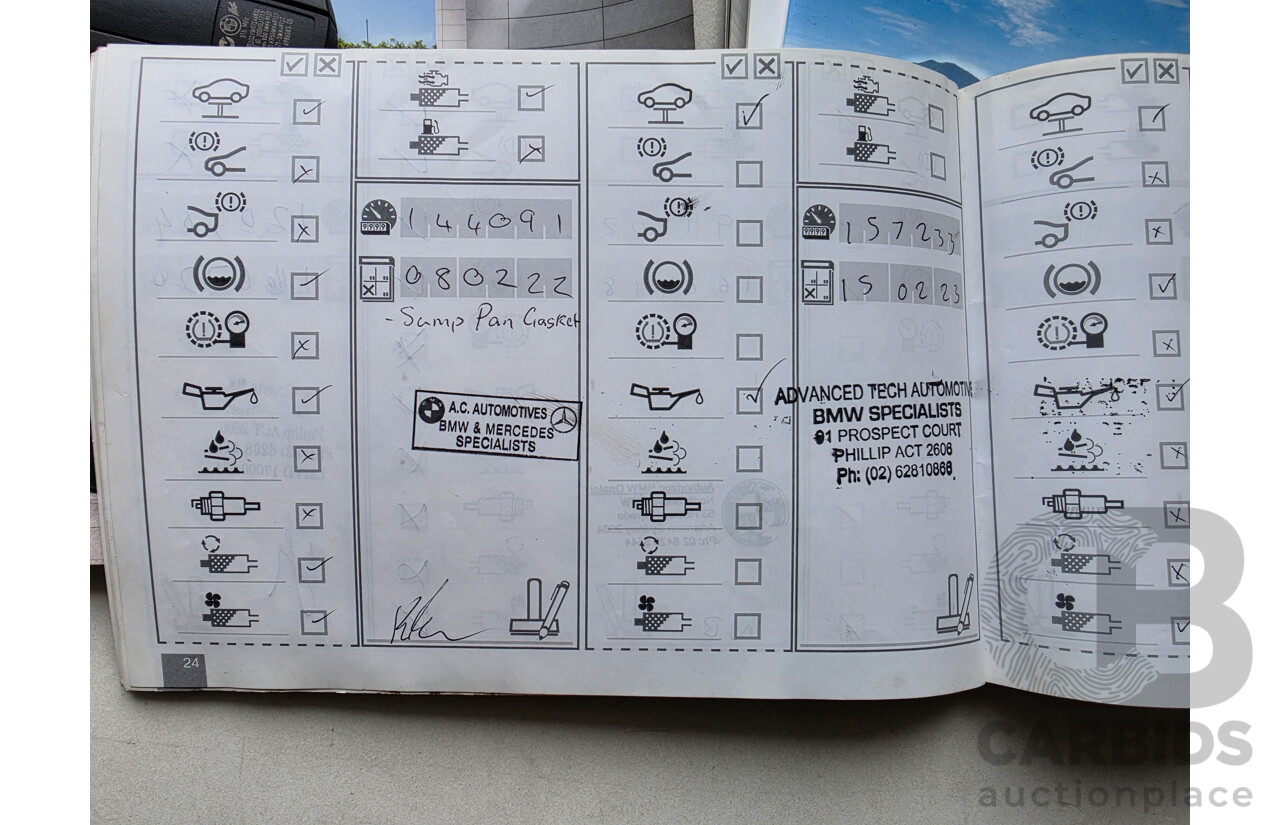 144091
080222
- Sump Pan Gasket
A.C. AUTOMOTIVES
BMW & MERCEDES
SPECIALISTS
24
157233
15 0223
ADVANCED TECH AUTOMOTIVE
BMW SPECIALISTS
91 PROSPECT COURT
PHILLIP ACT 2606
Ph: (02) 62810866
CARBIDS
auctionplace